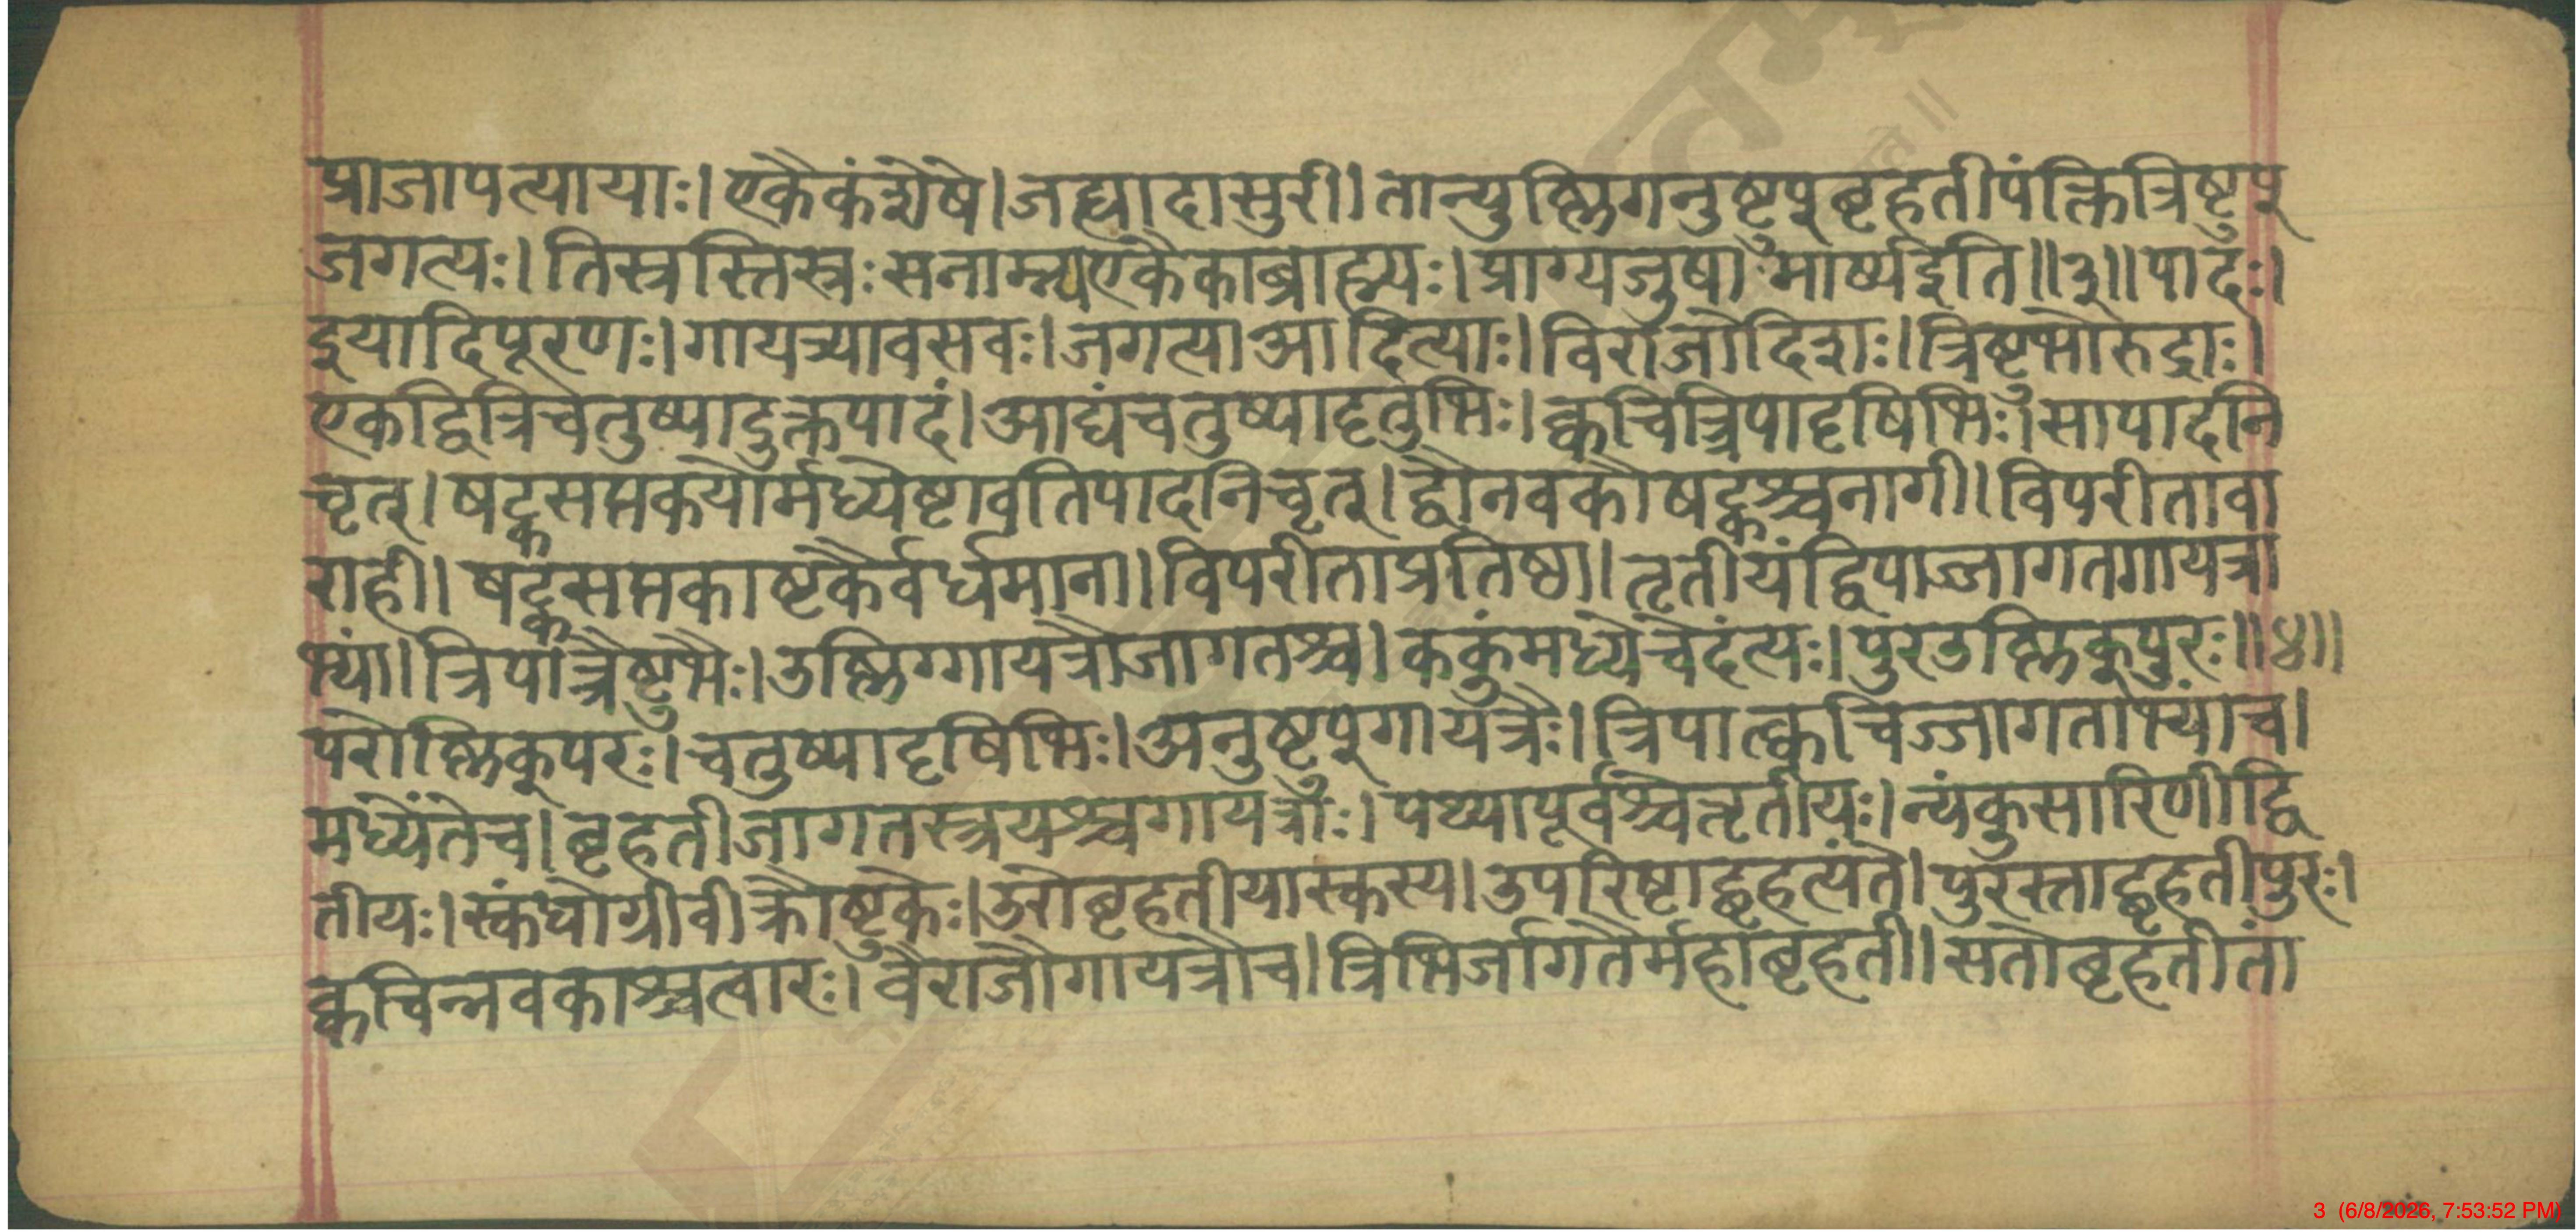 प्राजापत्यायाः। एकैकंशेषे। जह्यादासुरी। तान्युष्णिगनुष्टुप्बृहतीपंक्तित्रिष्टुप्
जगत्यः। तिस्रस्तिस्रःसनाम्न्यएकैकाब्राह्म्यः। प्राग्यजुषामार्ष्यइति॥३॥पादः।
इयादिपूरणः। गायत्र्यावसवः। जगत्याआदित्याः। विराजोदिशः। त्रिष्टुभोरुद्राः।
एकद्वित्रिचतुष्पादुक्तपादं। आद्यंचतुष्पादृतुभिः। क्वचित्त्रिपादृषिभिः। सापादनि
चृत्। षट्कसप्तकयोर्मध्येष्टावतिपादनिचृत्। द्वौनवकौषट्कश्चनागी। विपरीतावा
राही। षट्कसप्तकाष्टकैर्वर्धमाना। विपरीताप्रतिष्ठा। तृतीयंद्विपाज्जागतगायत्रा
भ्यां। त्रिपात्त्रैष्टुभैः। उष्णिग्गायत्रौजागतश्च। ककुंमध्येचेदंत्यः। पुरउष्णिक्पुरः॥४॥
परोष्णिक्परः। चतुष्पादृषिभिः। अनुष्टुप्गायत्रैः। त्रिपात्क्वचिज्जागताभ्यांच।
मध्येंतेच। बृहतीजागतस्त्रयश्चगायत्राः। पथ्यापूर्वश्चेत्तृतीयः। न्यंकुसारिणीद्वि
तीयः। स्कंधोग्रीवीक्रौष्टुकेः। उरोबृहतीयास्कस्य। उपरिष्टाद्बृहत्यंते। पुरस्ताद्बृहतीपुरः।
क्वचिन्नवकाश्चत्वारः। वैराजौगायत्रौच। त्रिभिर्जागतैर्महाबृहती। सतोबृहतीतां
3 (6/8/2026, 7:53:52 PM)